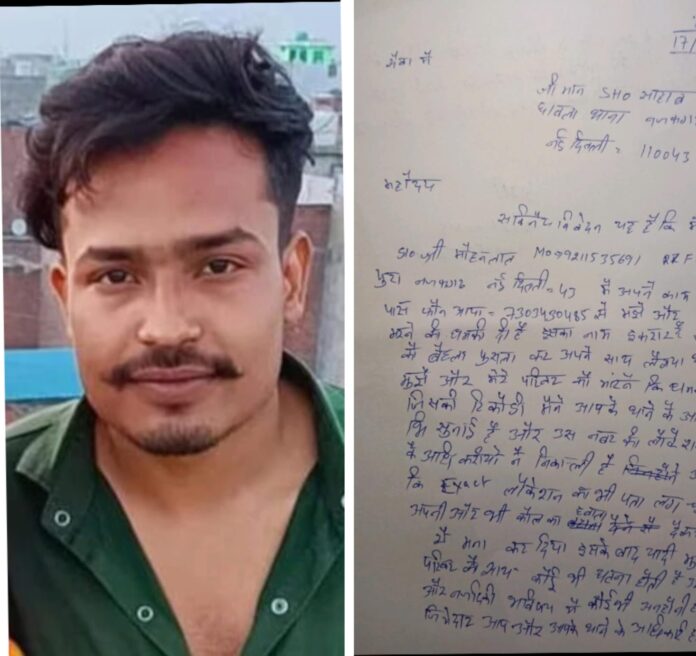 17/
सेवा में
श्री मान SHO साहब
छावला थाना नजफगढ़
नई दिल्ली = 110043
महोदय
सविनय निवेदन यह है कि
S/o श्री मोहनलाल MO 99211535691 RZF
पुरा नजफगढ़ नई दिल्ली = 43 में अपने काम
पास फोन आया = 7303430485 से मुझे और
मरने की धमकी दी है इसका नाम इकरार है
से बहला फुसला कर अपने साथ लेगया
मुझे और मेरे परिवार को मारने कि धम
जिसकी रिकोडी मैने आपके थाने के अ
भि सुनाई है और उस नंबर की लोके
के अधिकारीयो ने निकाली है
कि Exact लोकेशन का भी पता लग
अपनी और भी कौल का हवाला देक
से मना कर दिया इसके बाद यादी मु
परिवार के साथ कोई भी घटना होती है
और नजदिकी भविष्य में कोई भी अनहोनी ह
जिमेदार आप और आपके थाने के अधिकारी ह